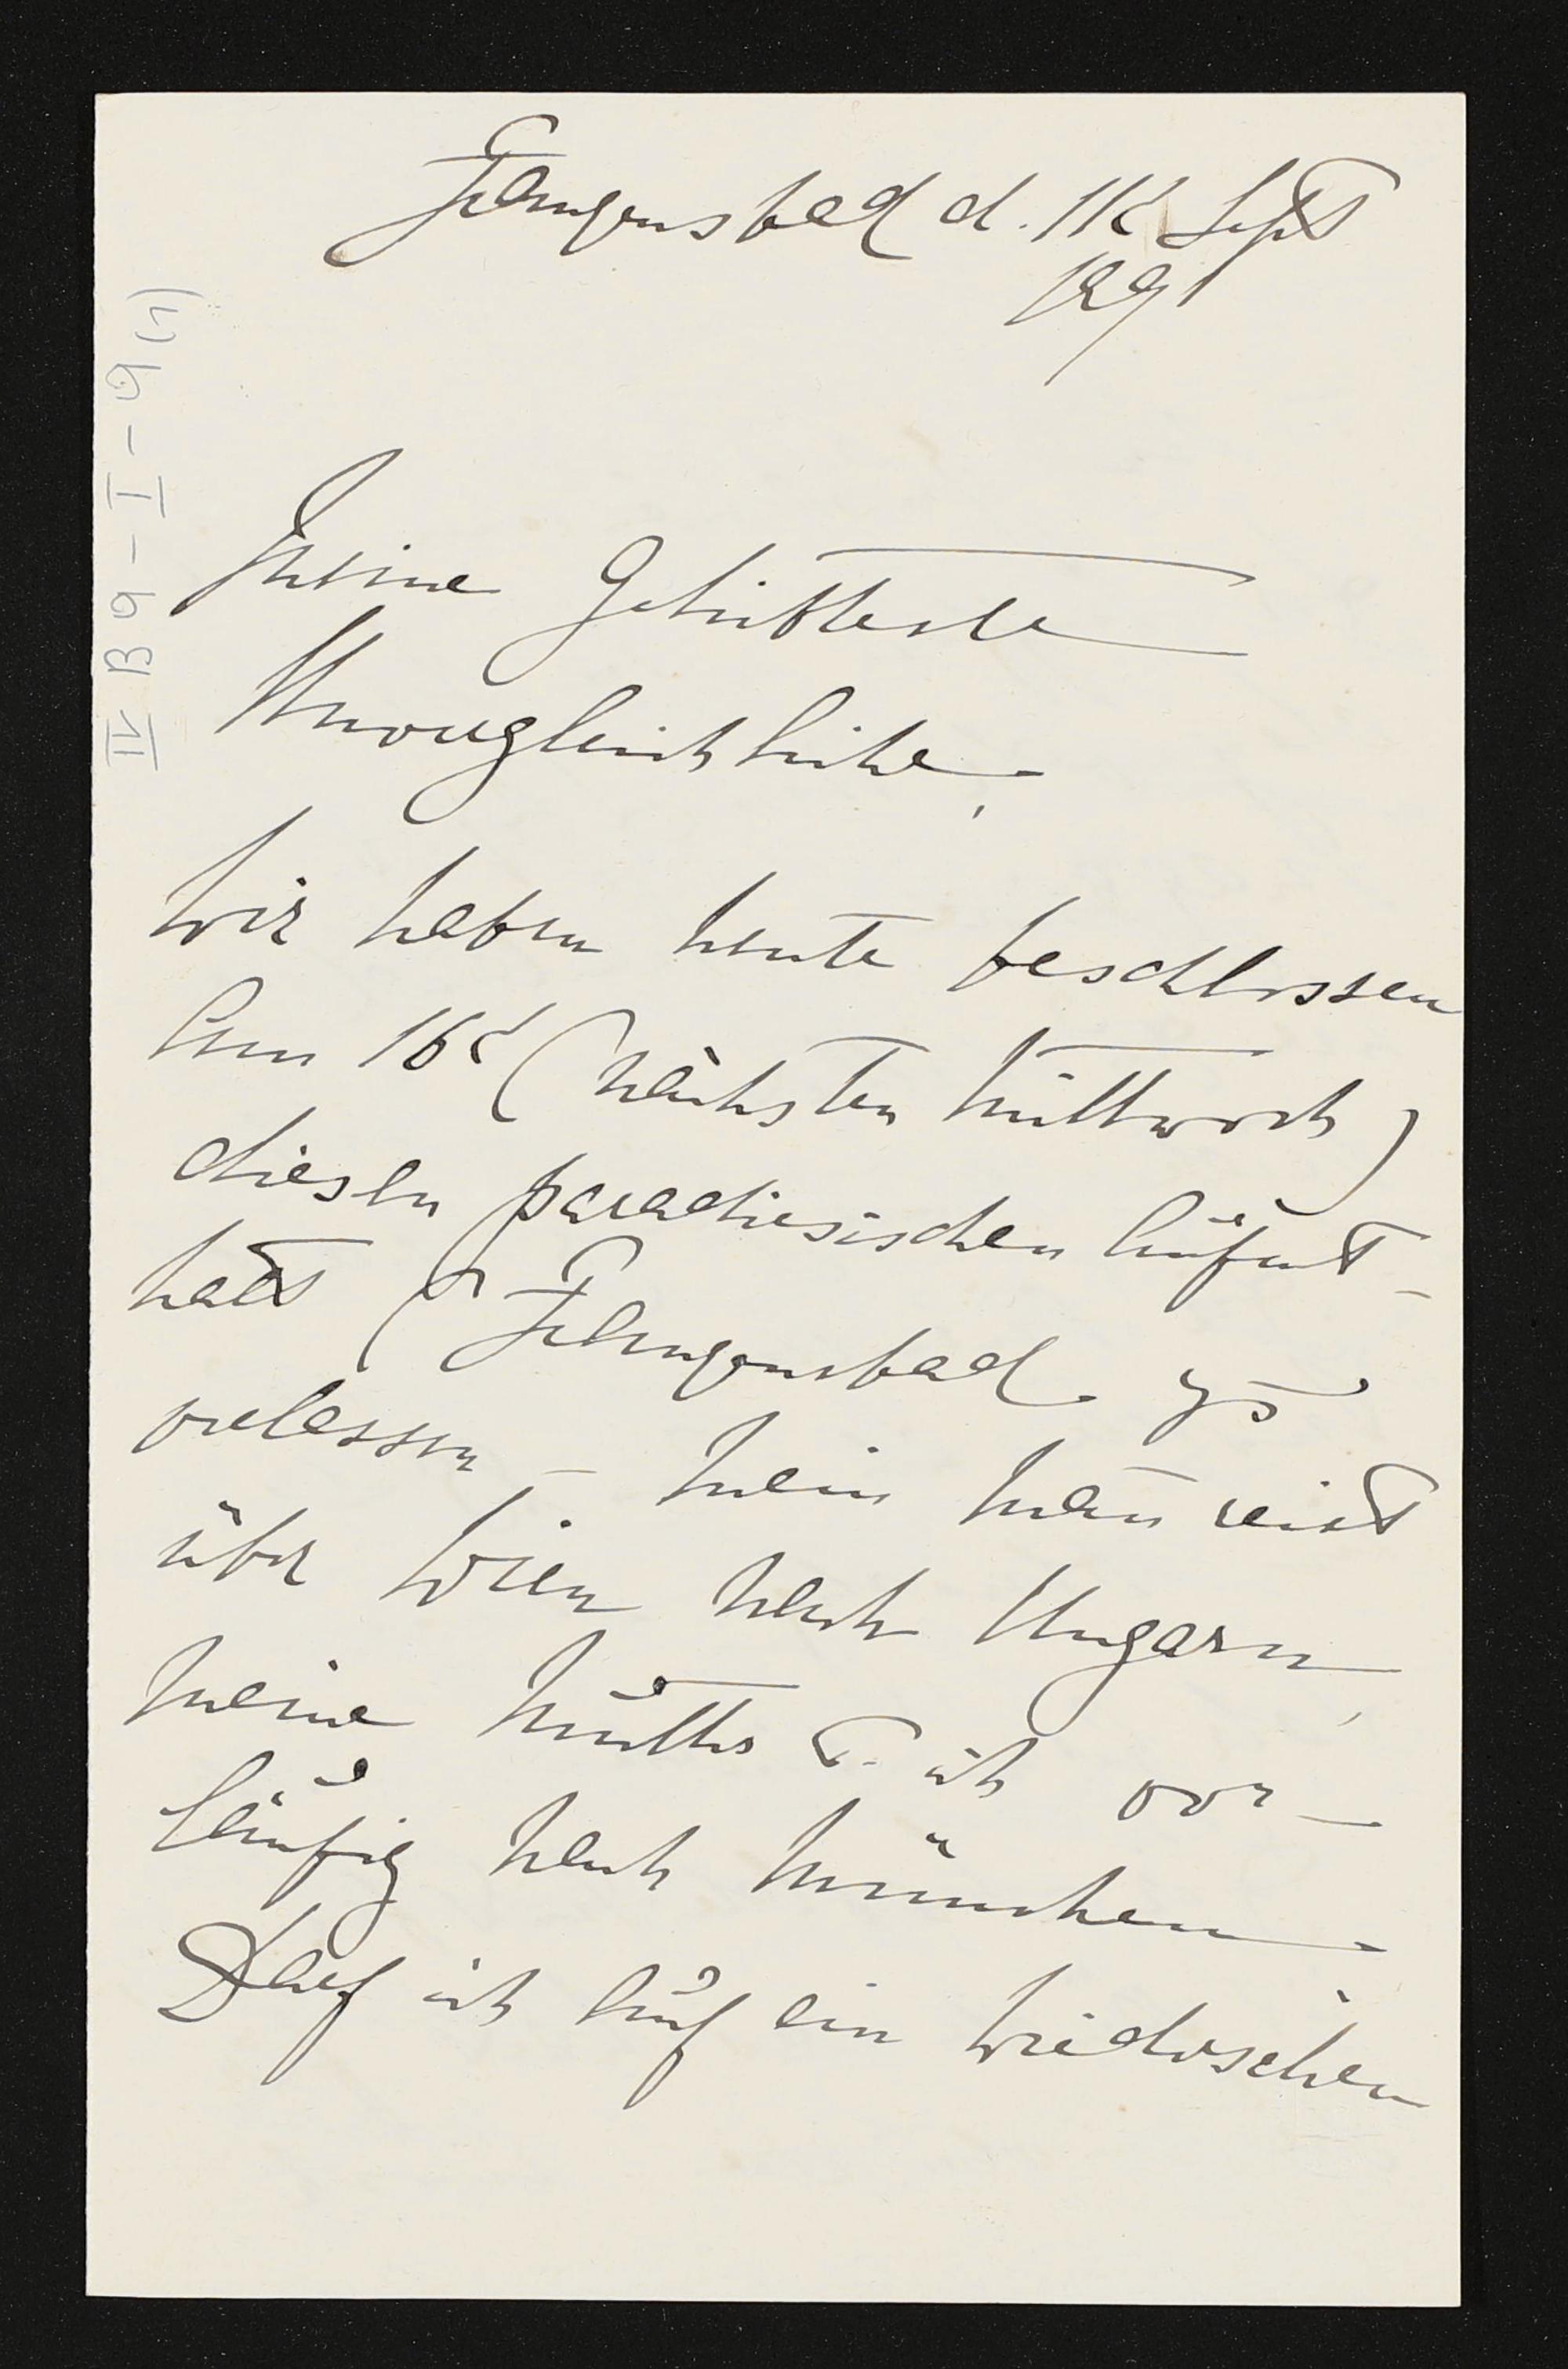 Franzensbad d. 11t Sept
1891
IV B 9 - I - 9 (1)
Meine Geliebteste
Unvergleichliche,
Wir haben heute beschlossen
Am 16t (nächsten Mittwoch)
diesen paradiesischen Aufent-
halt Franzensbad zu
verlassen – Mein Man̄ reist
über Wien nach Ungarn,
Meine Mutter u. ich vor-
läufig nach München.
Darf ich auf ein Wiedersehen